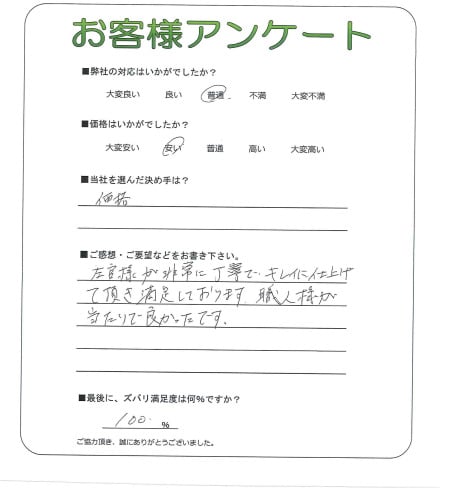 お客様アンケート
■弊社の対応はいかがでしたか？
大変良い 良い 普通 不満 大変不満
■価格はいかがでしたか？
大変安い 安い 普通 高い 大変高い
■当社を選んだ決め手は？
価格
■ご感想・ご要望などをお書き下さい。
左官様が非常に丁寧で、キレイに仕上げ
て頂き満足しております。職人様が
当たりで良かったです。
■最後に、ズバリ満足度は何%ですか？
100. %
ご協力頂き、誠にありがとうございました。